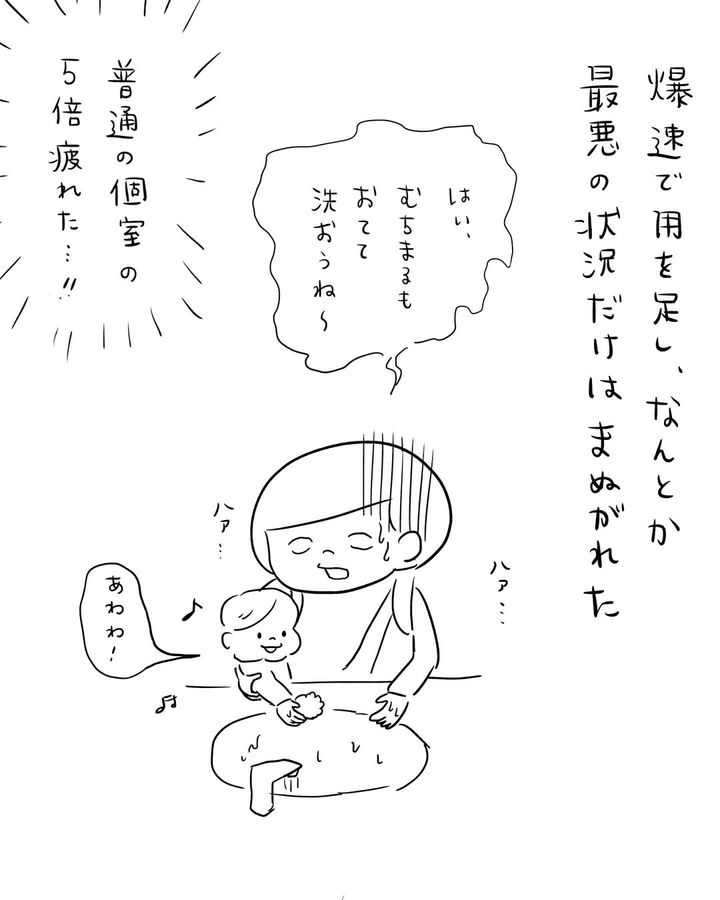 爆速で用を足し、なんとか
最悪の状況だけはまぬがれた
はい、
むちまるも
おてて
洗おうね〜
ハァ…
ハァ…
あわわ!
普通の個室の
5倍疲れた…!!